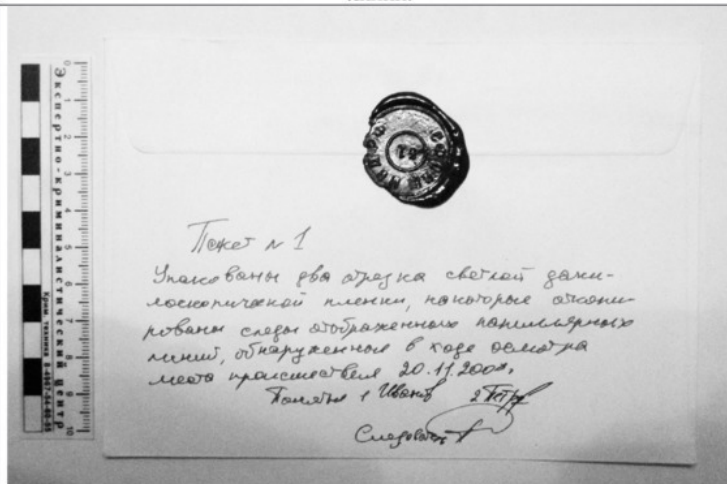 Экспертно-криминалистический центр
0 1 2 3 4 5 6 7 8 9 10
Пакет № 1
Упакованы два отрезка светлой дакти-
лоскопической пленки, на которые откопи-
рованы следы отображенных папиллярных
линий, обнаруженные в ходе осмотра
места происшествия 20.11.200
Понятые 1 Иванов 2 Петров
Следователь